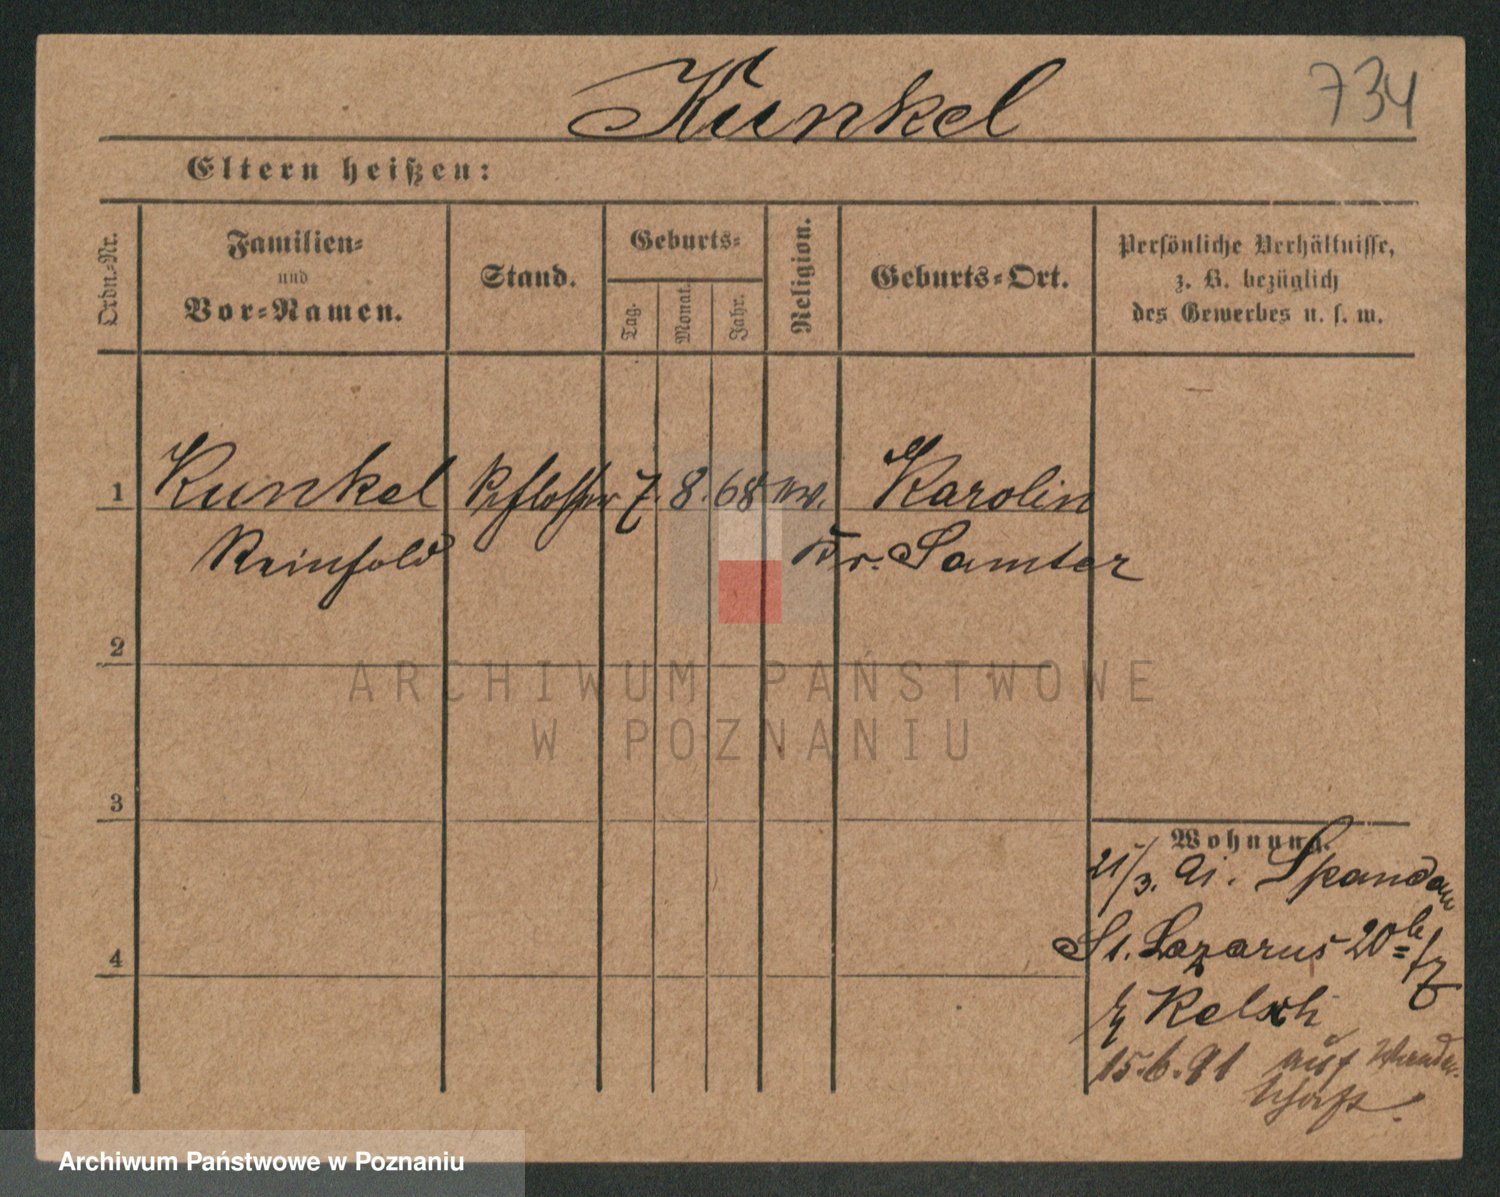 Kunkel
734
Eltern heißen:
Ordn.-Nr.
Familien-
und
Vor-Namen.
Stand.
Geburts-
Tag.
Monat.
Jahr.
Religion.
Geburts-Ort.
Persönliche Verhältnisse,
z. B. bezüglich
des Gewerbes u. s. w.
1 Kunkel Schlosser 7. 8. 68 ev. Karolin
Reinhold Kr. Samter
2
ARCHIWUM PAŃSTWOWE
W POZNANIU
3
Wohnung.
21/3. 91. Spandau
St. Lazarus 20
4
Kelsch
15.6.91 auf Wander
schaft.
Archiwum Państwowe w Poznaniu